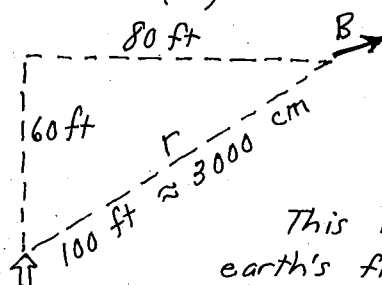 80 ft
B
60 ft
r
100 ft ≈ 3000 cm
This
earth's